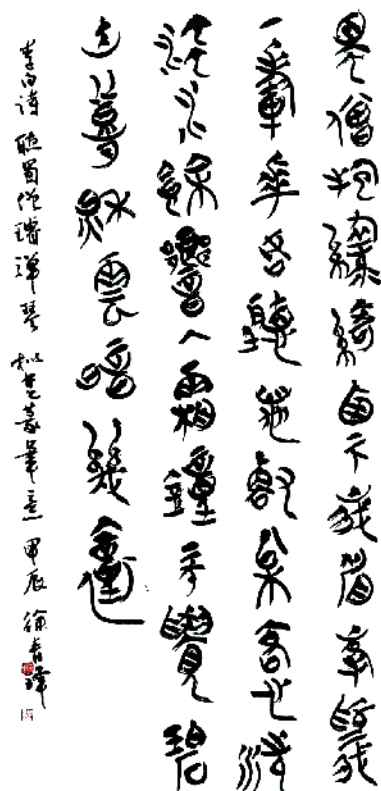 蜀僧抱綠綺西下峨眉峯為我
一揮手如聽萬壑松客心洗
流水餘響入霜鐘不覺碧
山暮秋雲暗幾重
李白詩 聽蜀僧濬彈琴 擬楚篆筆意 甲辰 徐